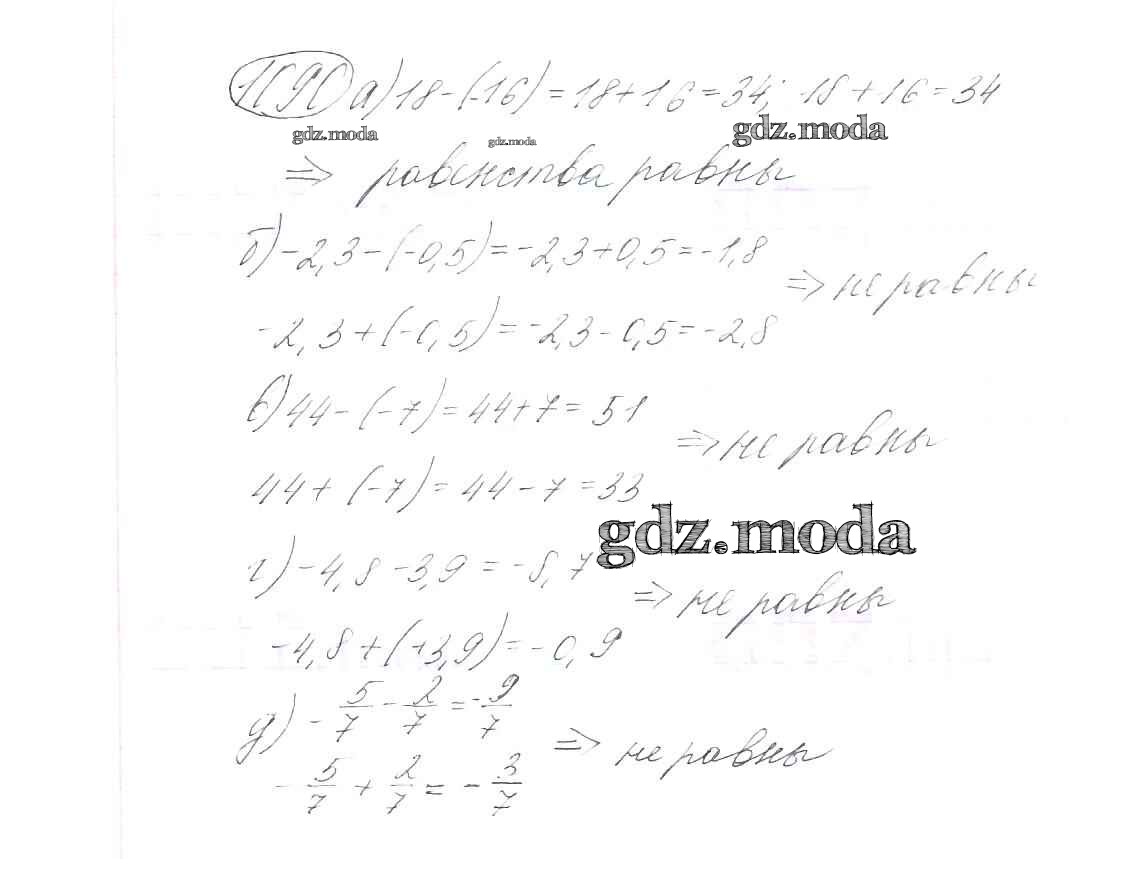 1090 а) 18 - (-16) = 18 + 16 = 34; 18 + 16 = 34
gdz.moda gdz.moda gdz.moda
=> равенства равны
б) -2,3 - (-0,5) = -2,3 + 0,5 = -1,8
=> не равны
-2,3 + (-0,5) = -2,3 - 0,5 = -2,8
в) 44 - (-7) = 44 + 7 = 51
=> не равны
44 + (-7) = 44 - 7 = 33
gdz.moda
г) -4,8 - 3,9 = -8,7
=> не равны
-4,8 + (+3,9) = -0,9
д) - 5/7 - 2/7 = - 9/7
=> не равны
- 5/7 + 2/7 = - 3/7